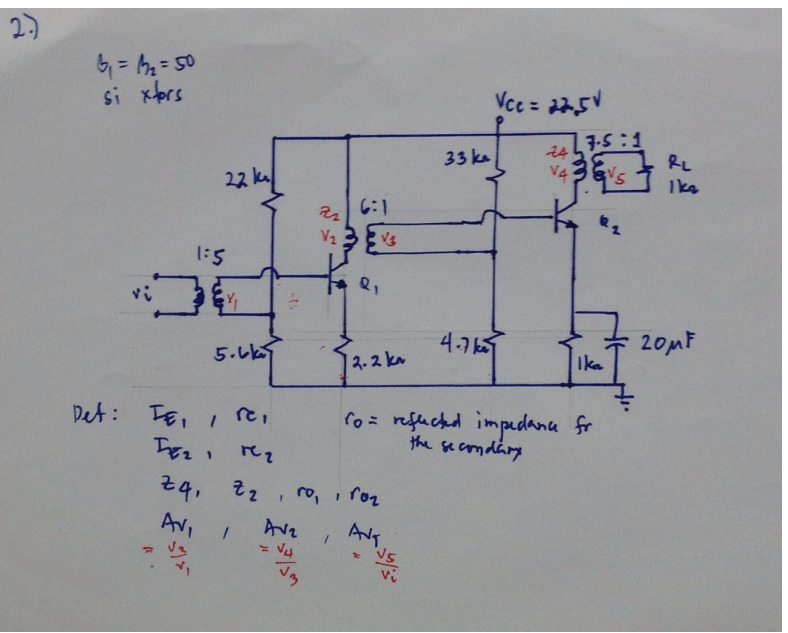 2.)
β₁ = β₂ = 50
si xtors
Vcc = 22.5V
22 kΩ
33 kΩ
7.5 : 1
Z4
V4
V5
RL
1kΩ
Z2
V2
6:1
V3
Q2
1:5
vi
V1
Q1
5.6kΩ
2.2 kΩ
4.7kΩ
1kΩ
20μF
Det : IE1 , re1
IE2 , re2
Z4, Z2 , ro1 , ro2
Av1 , Av2 , AvT
= V2/V1 = V4/V3 = V5/Vi
ro = reflected impedance fr
the secondary